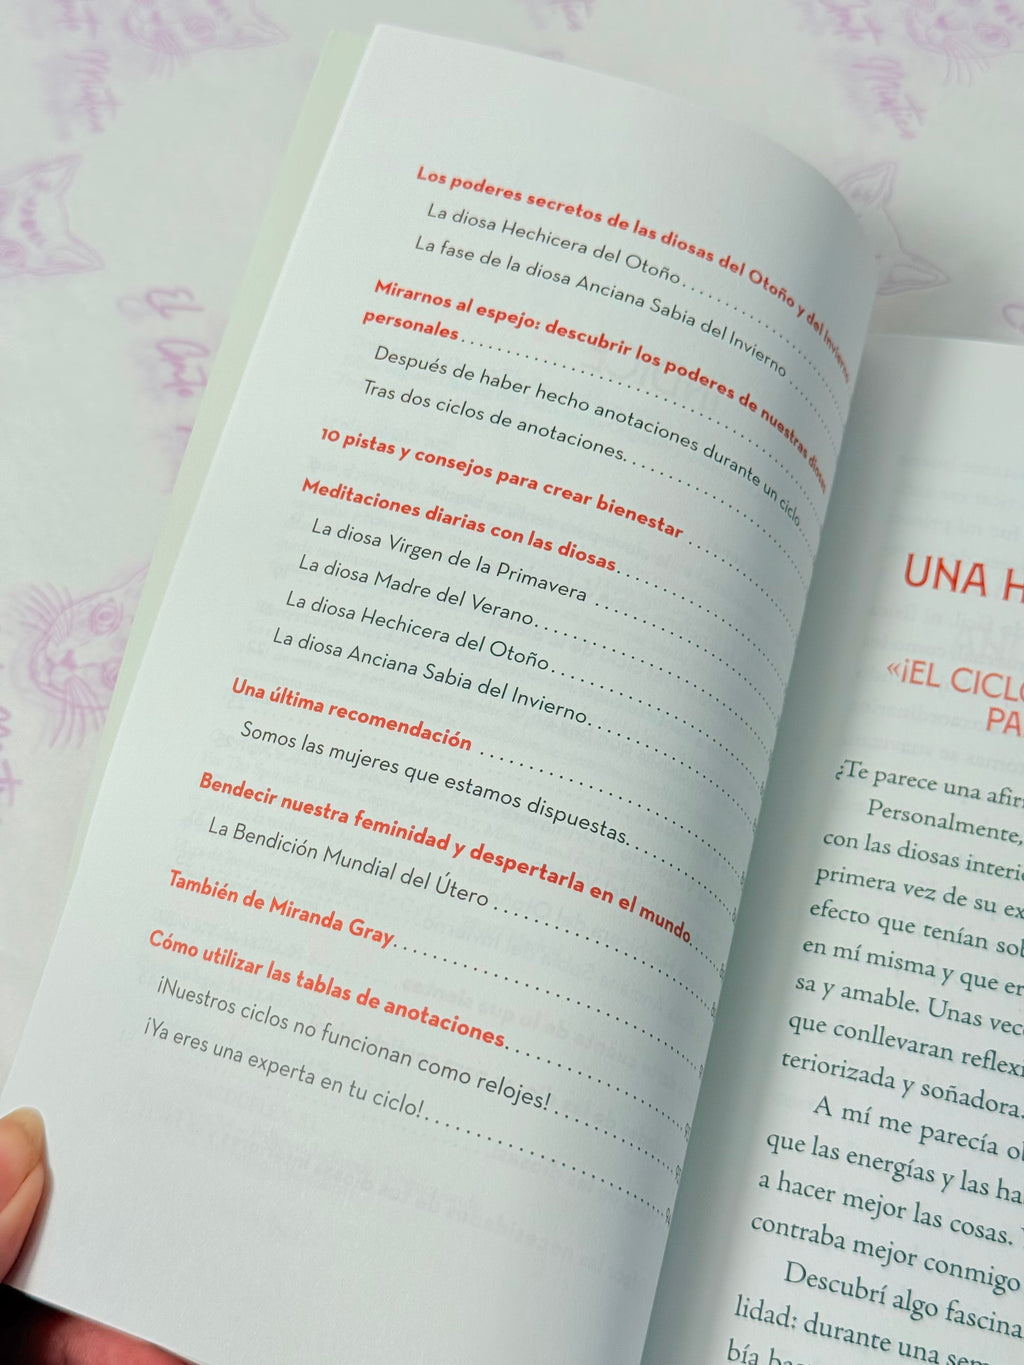 Los poderes secretos de las diosas del Otoño y del Invierno
La diosa Hechicera del Otoño
La fase de la diosa Anciana Sabia del Invierno
Mirarnos al espejo: descubrir los poderes de nuestras diosas
personales
Después de haber hecho anotaciones durante un ciclo
Tras dos ciclos de anotaciones
10 pistas y consejos para crear bienestar
Meditaciones diarias con las diosas
La diosa Virgen de la Primavera
La diosa Madre del Verano
La diosa Hechicera del Otoño
La diosa Anciana Sabia del Invierno
Una última recomendación
Somos las mujeres que estamos dispuestas
Bendecir nuestra feminidad y despertarla en el mundo
La Bendición Mundial del Útero
También de Miranda Gray
Cómo utilizar las tablas de anotaciones
¡Nuestros ciclos no funcionan como relojes!
¡Ya eres una experta en tu ciclo!
UNA H
«¡EL CICLO
PA
¿Te parece una afir
Personalmente,
con las diosas interi
primera vez de su ex
efecto que tenían sob
en mí misma y que er
sa y amable. Unas vec
que conllevaran reflexi
teriorizada y soñadora.
A mí me parecía ob
que las energías y las ha
a hacer mejor las cosas.
contraba mejor conmigo
Descubrí algo fascina
lidad: durante una sem
bía
El Gato Místico